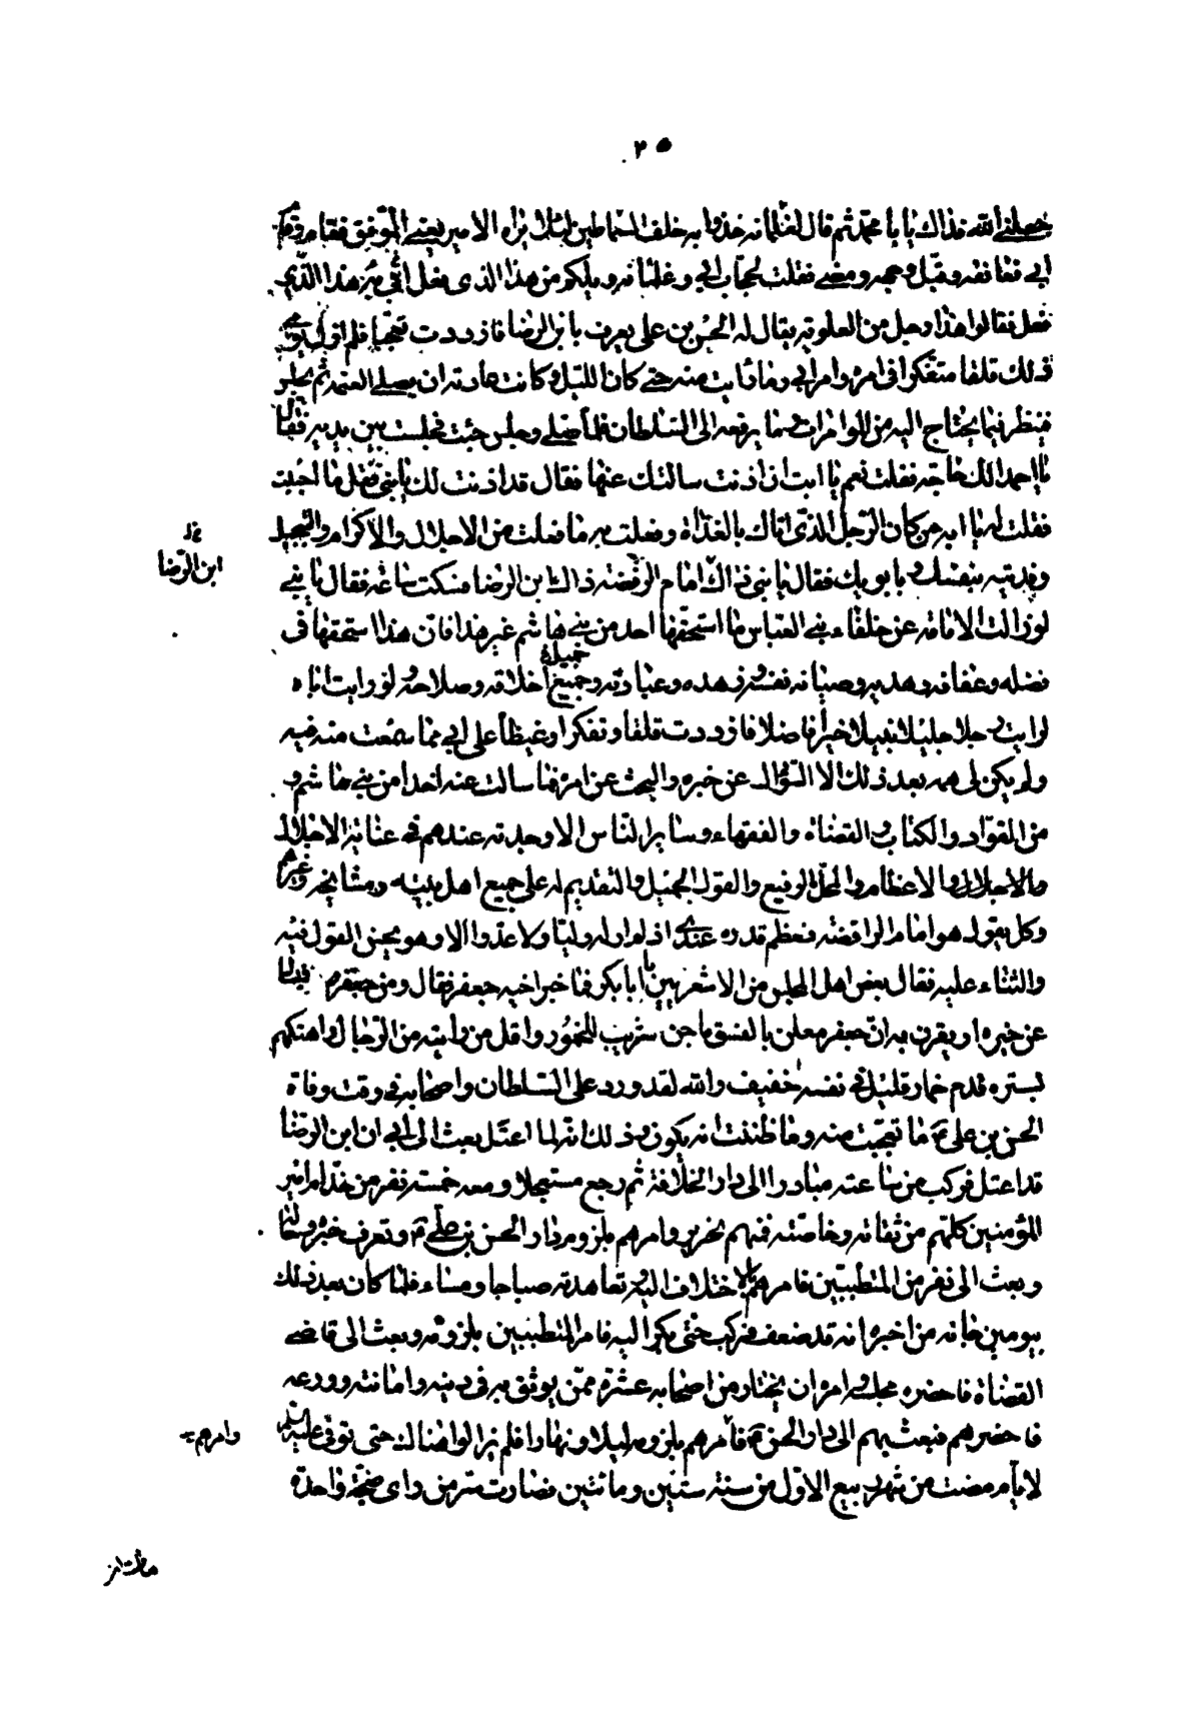 ٢٥
جعلني الله فداك يا با محمد ثم قال لغلمانه خذوا به خلف السماطين لئلا يراه الامير يعني الموفق فقام وقام
ابي فعانقه وقبل وجهه ومضى فقلت لحجاب ابي وغلمانه ويلكم من هذا الذي فعل ابي به هذا الذي
فعل فقالوا هذا رجل من العلوية يقال له الحسن بن علي يعرف بابن الرضا فازددت تعجبا فلم ازل يومي
ذلك قلقا متفكرا في امره وامر ابي وما رايت منه حتى كان الليل وكانت عادته ان يصلي العتمة ثم يجلس
فينظر فيما يحتاج اليه من الموامرات وما يرفعه الى السلطان فلما صلى وجلس جئت فجلست بين يديه فقال
يا احمد الك حاجة فقلت نعم يا ابت ان اذنت سالتك عنها فقال قد اذنت لك يا بني فقل ما احببت
فقلت له يا ابه من كان الرجل الذي اتاك بالغداة وفعلت به ما فعلت من الاجلال والاكرام والتبجيل
وفديته بنفسك وبابويك فقال يا بني ذاك امام الرفضة ذاك ابن الرضا فسكت ساعة فقال يا بني
ابن الرضا
لو زالت الامامة عن خلفاء بني العباس ما استحقها احد من بني هاشم غير هذا فان هذا استحقها في
فضله وعفافه وهديه وصيانة نفسه وزهده وعبادته وجميع اخلاقه وصلاحه ولو رايت اباه
جميل
لرايت رجلا جليلا نبيلا خيرا فاضلا فازددت قلقا وتفكرا وغيظا على ابي مما سمعت منه فيه
ولم يكن لي همه بعد ذلك الا السؤال عن خبره والبحث عن امره فما سالت عنه احدا من بني هاشم و
من القواد والكتاب والقضاة والفقهاء وساير الناس الا وجدته عندهم في غاية الاجلال
والاجلال والاعظام والمحل الرفيع والقول الجميل والتقديم له على جميع اهل بيته ومشايخه وغيرهم
وكل يقول هو امام الرافضة فعظم قدره عندي اذ لم ار له وليا ولا عدوا الا وهو يحسن القول فيه
والثناء عليه فقال بعض اهل المجلس من الاشعريين يا ابا بكر فما خبر اخيه جعفر فقال ومن جعفر فيسال
عن خبره او يقرن به ان جعفر معلن بالفسق ماجن شريب للخمور واقل من رايته من الرجال واهتكهم
لستره فدم خمار قليل في نفسه خفيف والله لقد ورد على السلطان واصحابه في وقت وفاة
الحسن بن علي ما تعجبت منه وما ظننت انه يكون وذلك انه لما اعتل بعث الى ابي ان ابن الرضا
قد اعتل فركب من ساعته مبادرا الى دار الخلافة ثم رجع مستعجلا ومعه خمسة نفر من خدام امير
المؤمنين كلهم من ثقاته وخاصته فمنهم نحرير وامرهم بلزوم دار الحسن بن علي وتعرف خبره وحاله
وبعث الى نفر من المتطببين فامرهم بالاختلاف اليه وتعاهدته صباحا ومساء فلما كان بعد ذلك
بيومين جاءه من اخبره انه قد ضعف فركب حتى بكر اليه فامر المتطببين بلزومه وبعث الى قاضي
القضاة فاحضره مجلسه وامره ان يختار من اصحابه عشرة ممن يوثق به في دينه وامانته وورعه
فاحضرهم فبعث بهم الى دار الحسن فامرهم بلزومه ليلا ونهارا فلم يزالوا هناك حتى توفي عليه السلم
وامرهم
لايام مضت من شهر ربيع الاول من سنة ستين ومائتين فصارت سر من راى ضجة واحدة
مات ابن